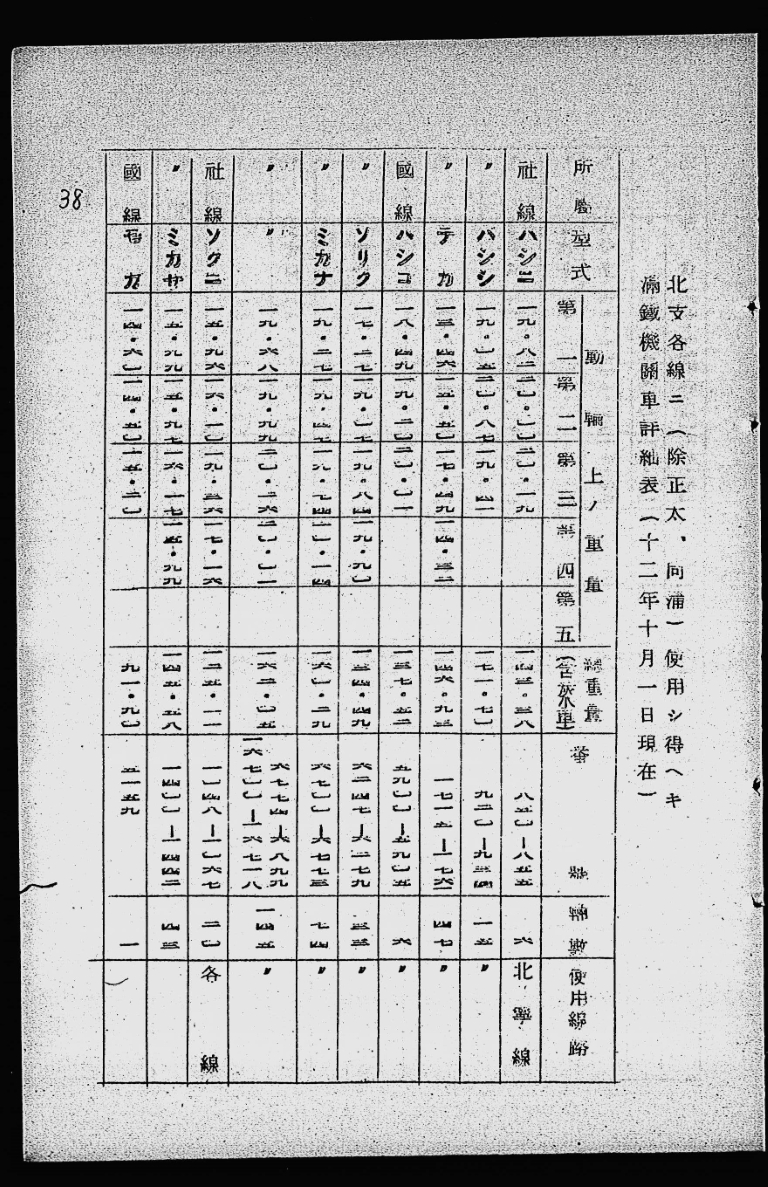 北支各線ニ(除正太、同浦)使用シ得ヘキ
滿鐵機關車詳細表(十二年十月一日現在)
所屬 型式 動輪上ノ重量 第一 第二 第三 第四 第五 總重量(含炭水車) 番號 輛數 使用線路
社線 パシニ 一九・八二 二〇・一九 一四三・三八 八五〇―八五五 六 北寧線
〃 パシシ 一九・〇五 二〇・八七 一九・四一 一七一・七〇 九二〇―九三四 一五 〃
〃 デカ 一三・四六 一五・五〇 一七・四九 一四・三二 一四六・九三 一七一五―一七六一 四七 〃
國線 パシコ 一八・四九 一九・二〇 二〇・〇一 一三七・五二 五九〇〇―五九〇五 六 〃
〃 ソリク 一七・二七 一九・〇七 一九・八四 一九・九〇 一三四・四九 六二四七―六二七九 三三 〃
〃 ミカナ 一九・二七 一九・四七 一九・七四 二〇・一四 一六〇・二九 六七〇〇―六七七三 七四 〃
〃 〃 一九・六八 一九・九九 二〇・二六 二〇・二一 一六二・〇五 六七七四―六八九九 一六七〇〇―一六七一八 一四五 〃
社線 ソクニ 一五・九六 一六・一〇 一九・三六 一七・一六 一二五・一一 一〇四八―一〇六七 二〇 各線
〃 ミカヤ 一五・九九 一五・九七 一六・一七 一五・九九 一四五・五八 一四〇〇―一四四二 四三
國線 モガ 一四・六〇 一四・五〇 一五・二〇 九一・九〇 五一五九 一
38